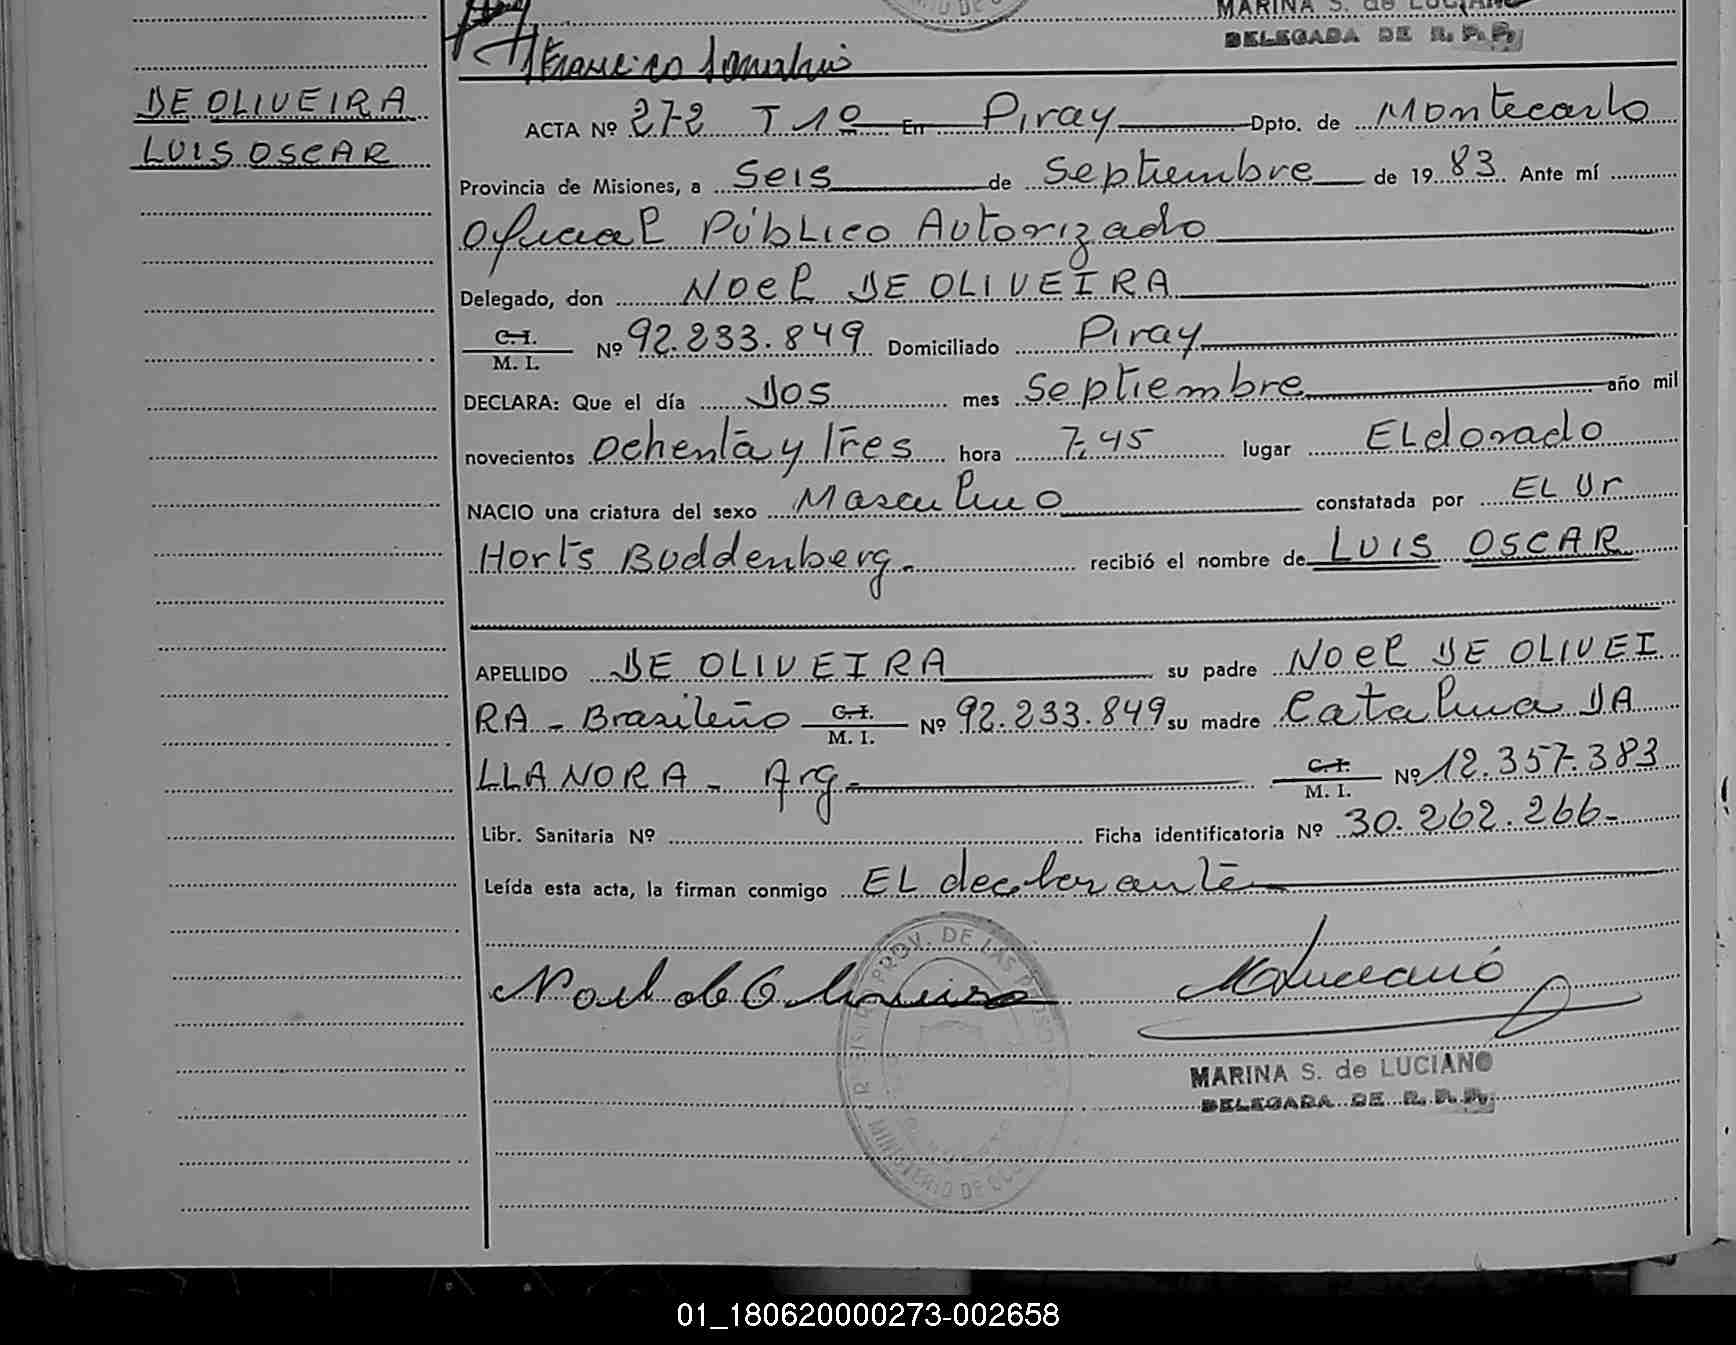 MARINA S. de LUCIANO
DELEGADA DE R. P. P.
Francisco
DE OLIVEIRA
LUIS OSCAR
ACTA Nº 272 T 1º En Piray Dpto. de Montecarlo
Provincia de Misiones, a Seis de Septiembre de 1983. Ante mí
Oficial Público Autorizado
Delegado, don Noel DE OLIVEIRA
C.I.
M. I. Nº 92.233.849 Domiciliado Piray
DECLARA: Que el día Dos mes Septiembre año mil
novecientos Ochenta y Tres hora 7,45 lugar ELdorado
NACIO una criatura del sexo Masculino constatada por EL Dr
Horts Buddenberg. recibió el nombre de LUIS OSCAR
APELLIDO DE OLIVEIRA su padre Noel DE OLIVEI
RA - Brasileño C.I. M. I. Nº 92.233.849 su madre Catalina DA
LLANORA - Arg. C.I. M. I. Nº 12.357.383
Libr. Sanitaria Nº Ficha identificatoria Nº 30.262.266-
Leída esta acta, la firman conmigo EL declarante
PROV. DE LAS
MINISTERIO DE
MARINA S. de LUCIANO
DELEGADA DE R. P. P.
01_180620000273-002658